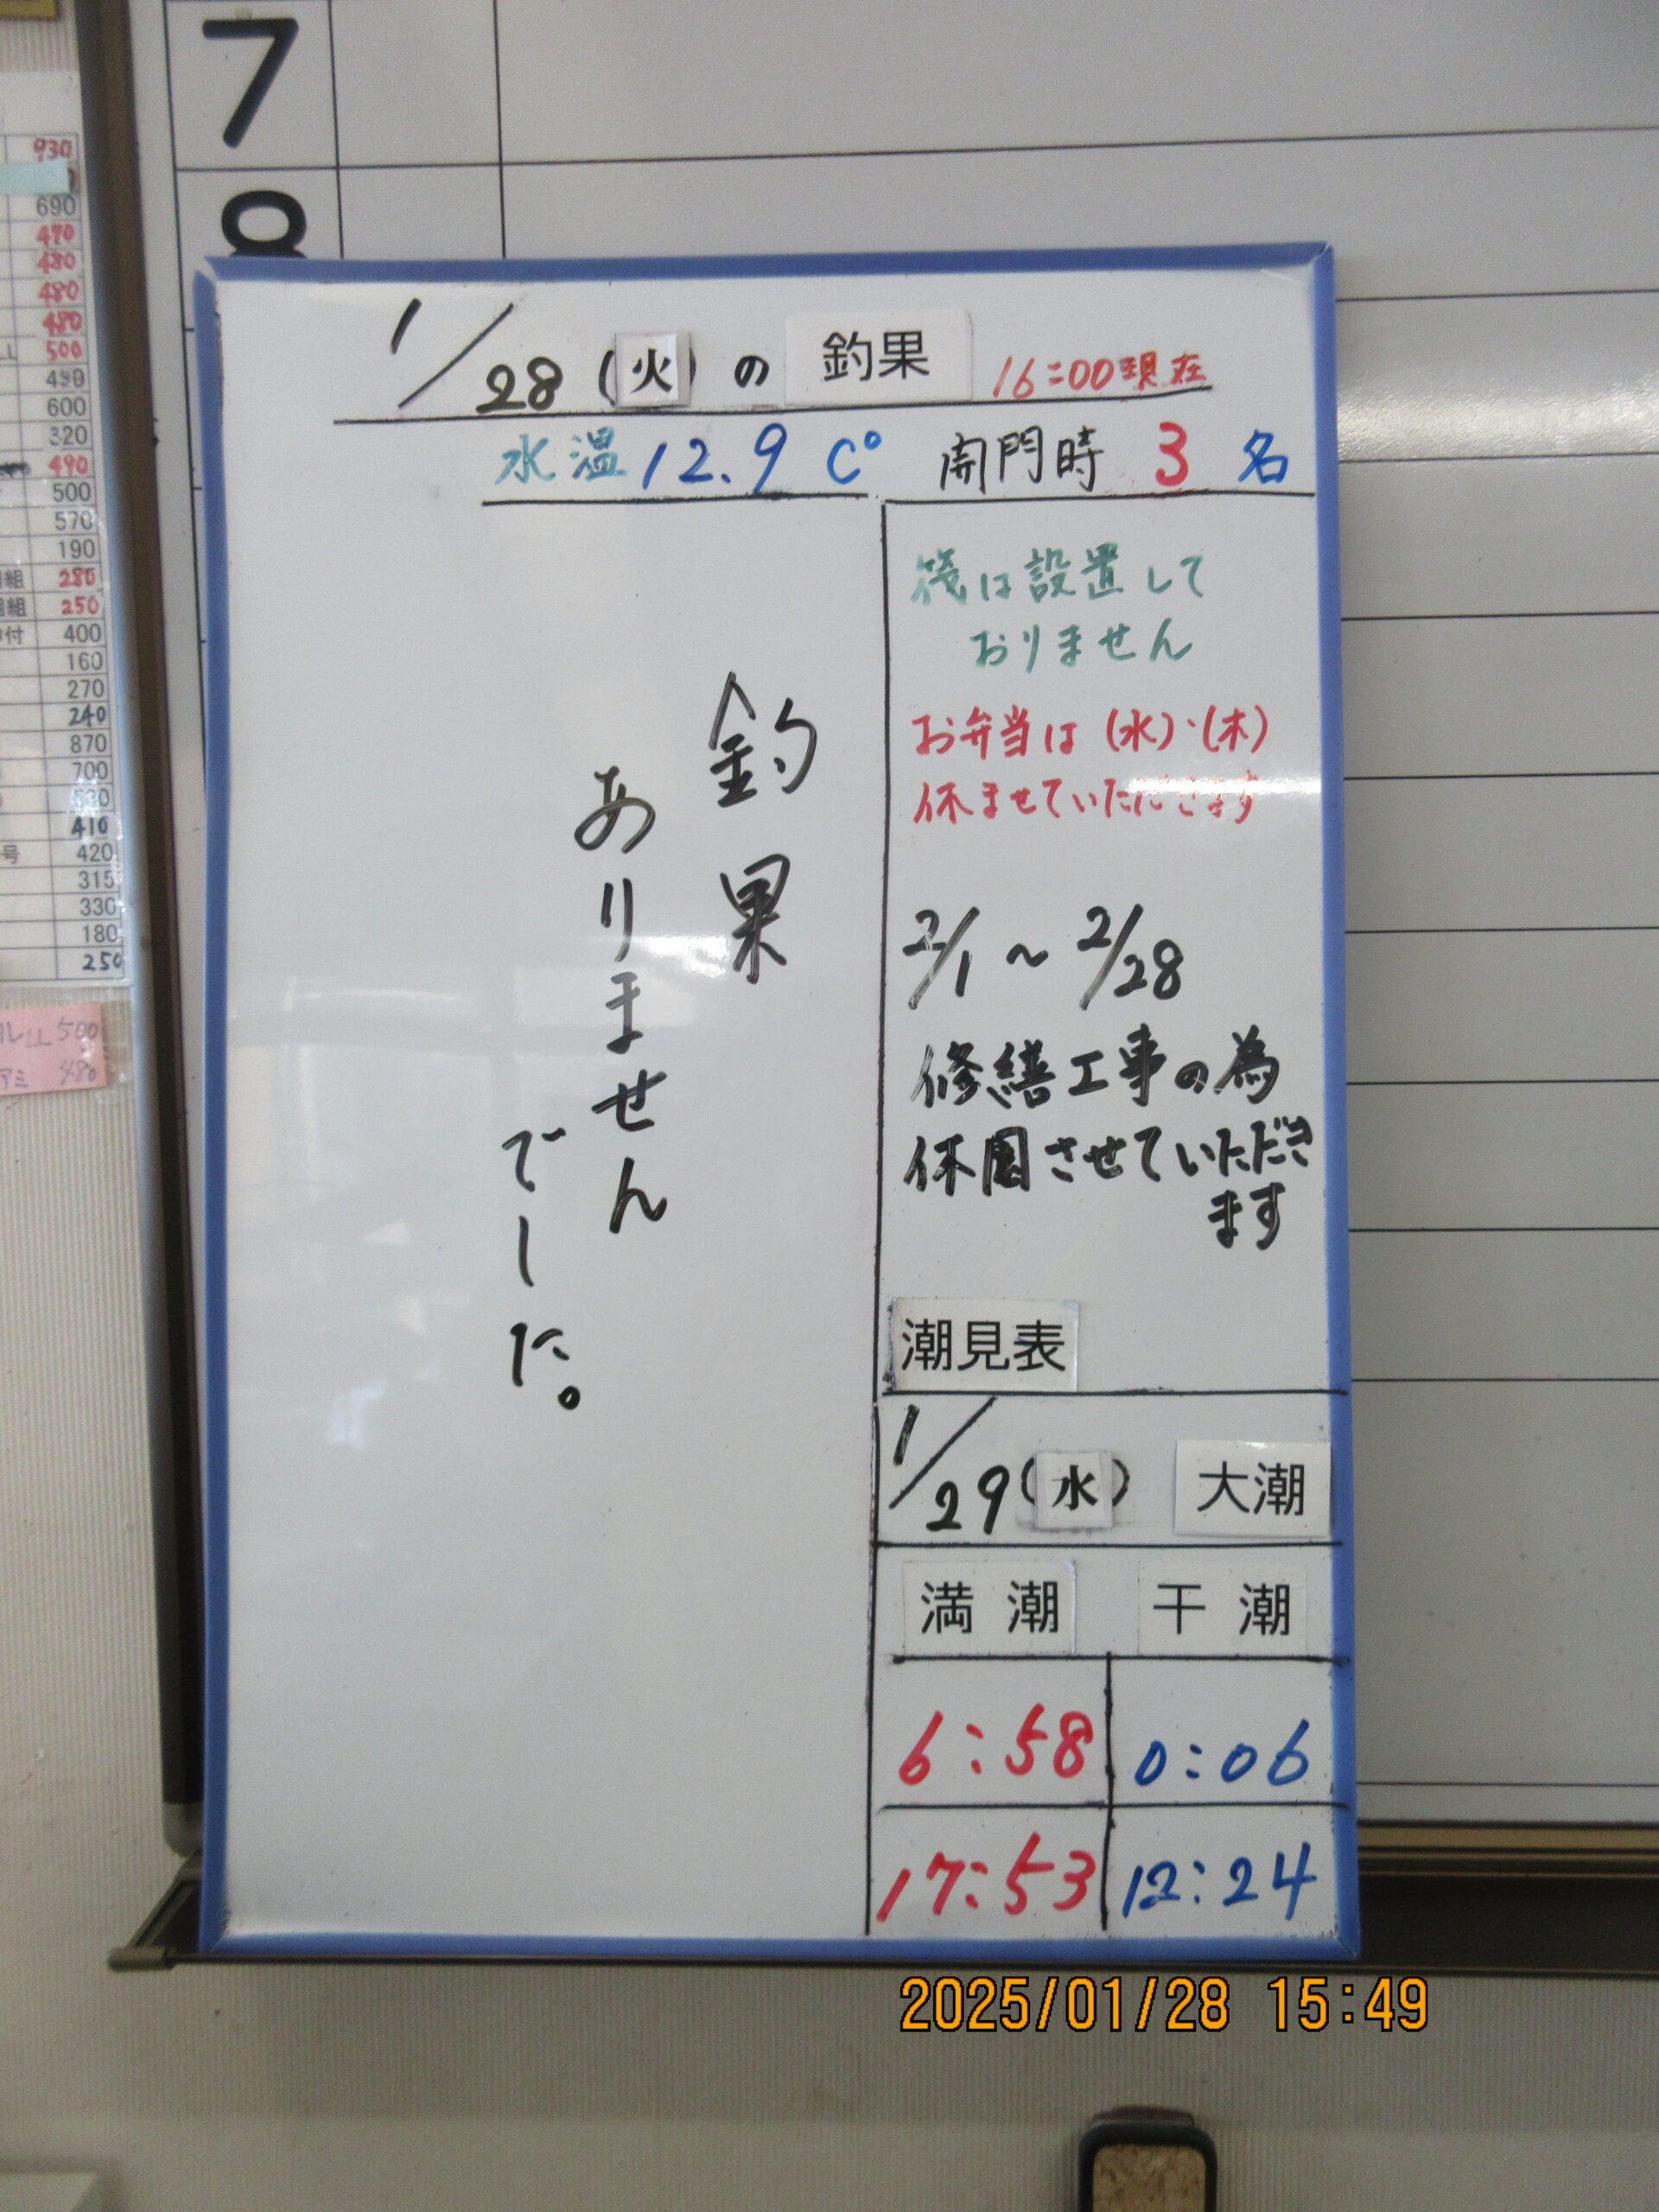 7
8
930
690
470
480
480
480
LL 500
490
600
320
490
500
570
190
組 280
組 250
付 400
160
270
240
870
700
410
号 420
315
330
180
250
LL 500
アミ 480
1/28 (火) の 釣果 16:00現在
水温 12.9 C° 開門時 3 名
筏は設置して
おりません
お弁当は (水)・(木)
休ませていただきます
2/1 ~ 2/28
修繕工事の為
休園させていただき
ます
釣果
ありません
でした。
潮見表
1/29 (水) 大潮
満潮 干潮
6:58 0:06
17:53 12:24
2025/01/28 15:49